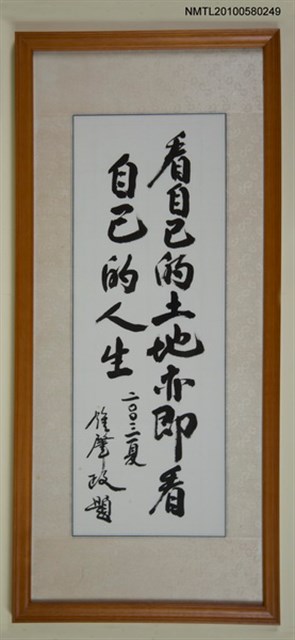 NMTL20100580249
看自己的土地亦即看
自己的人生
二〇〇三夏
鍾肇政題